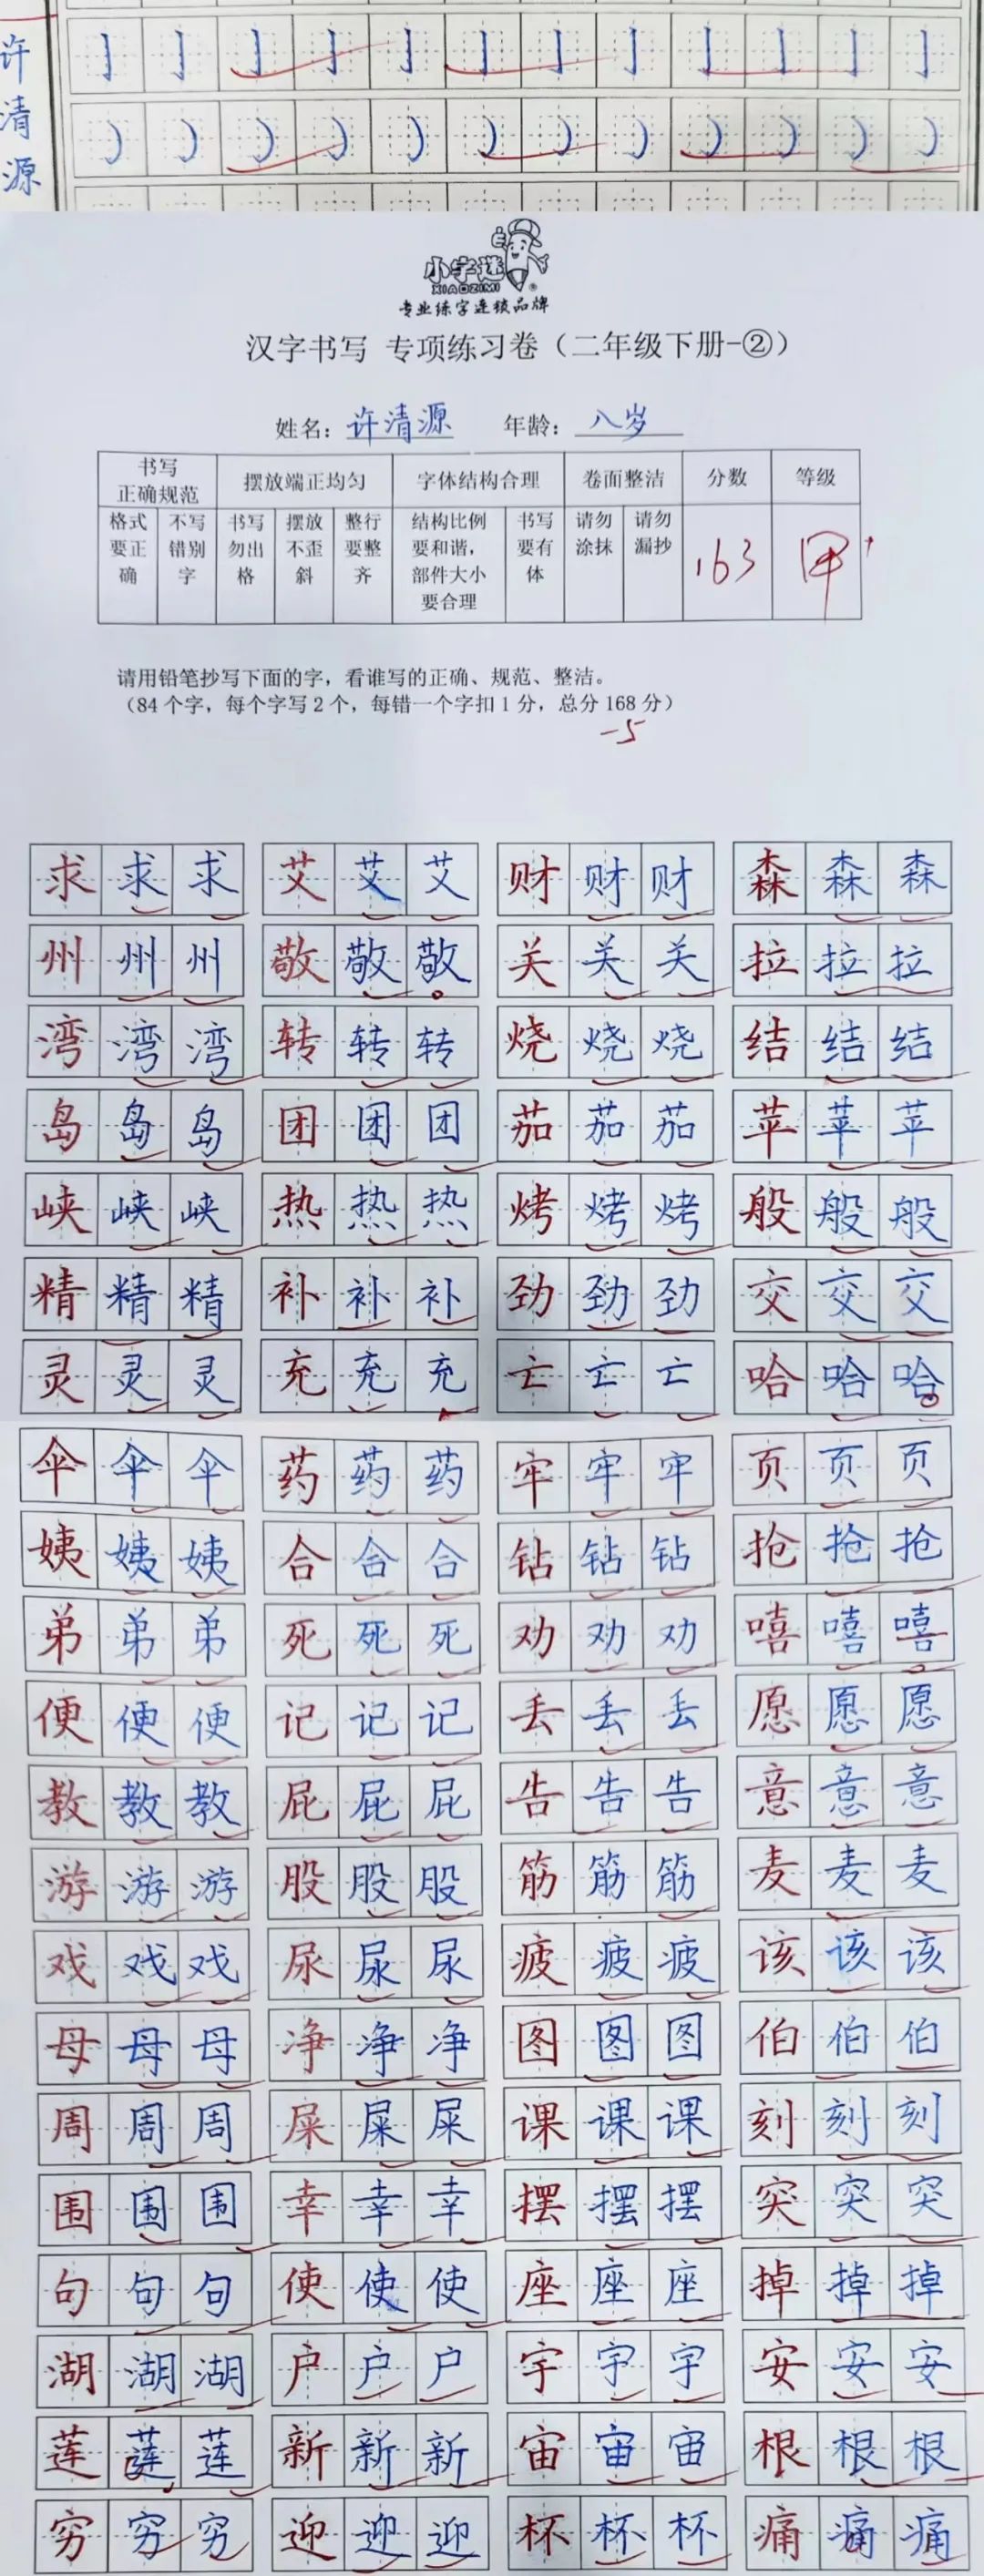 许
清
源
小字迷
XIAOZIMI
®
专业练字连锁品牌
汉字书写 专项练习卷（二年级下册-②）
姓名：许清源 年龄：八岁
书写正确规范 摆放端正均匀 字体结构合理 卷面整洁 分数 等级
格式要正确 不写错别字 书写勿出格 摆放不歪斜 整行要整齐 结构比例要和谐，部件大小要合理 书写要有体 请勿涂抹 请勿漏抄 163 甲+
请用铅笔抄写下面的字，看谁写的正确、规范、整洁。
（84个字，每个字写2个，每错一个字扣1分，总分168分）
-5
求求求 艾艾艾 财财财 森森森
州州州 敬敬敬 关关关 拉拉拉
湾湾湾 转转转 烧烧烧 结结结
岛岛岛 团团团 茄茄茄 苹苹苹
峡峡峡 热热热 烤烤烤 般般般
精精精 补补补 劲劲劲 交交交
灵灵灵 充充充 亡亡亡 哈哈哈
伞伞伞 药药药 牢牢牢 页页页
姨姨姨 合合合 钻钻钻 抢抢抢
弟弟弟 死死死 劝劝劝 嘻嘻嘻
便便便 记记记 丢丢丢 愿愿愿
教教教 屁屁屁 告告告 意意意
游游游 股股股 筋筋筋 麦麦麦
戏戏戏 尿尿尿 疲疲疲 该该该
母母母 净净净 图图图 伯伯伯
周周周 屎屎屎 课课课 刻刻刻
围围围 幸幸幸 摆摆摆 突突突
句句句 使使使 座座座 掉掉掉
湖湖湖 户户户 宇宇宇 安安安
莲莲莲 新新新 宙宙宙 根根根
穷穷穷 迎迎迎 杯杯杯 痛痛痛